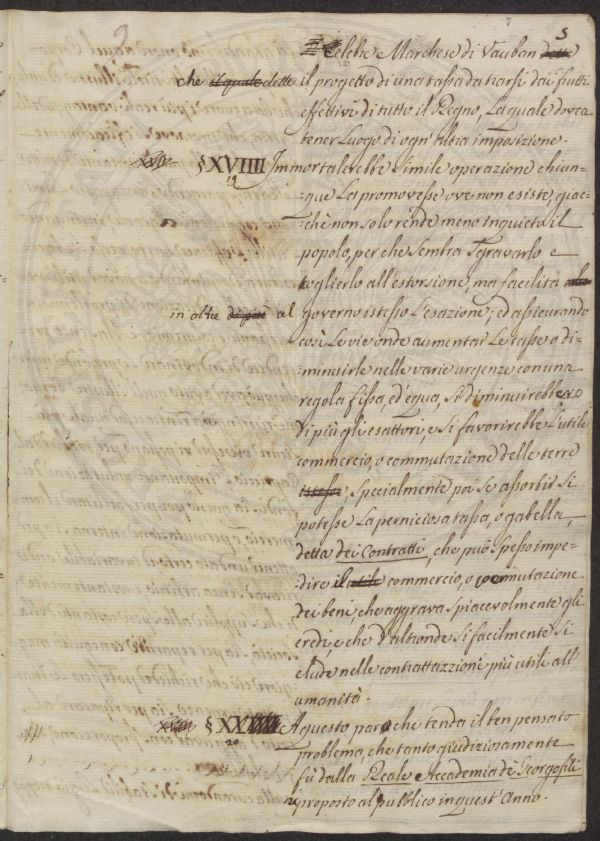 5
Celebre Marchese di Vauban dette
che il quale dette il progetto di una tassa da trarsi dai frutti
effettivi di tutto il Regno, La quale dovea
tener Luogo di ogn'altra imposizione.
§ XVIIII Immortalerebbe simile operazione chiun-
19
-que La promovesse ove non esiste, giac-
-chè non solo rende meno inquieto il
popolo, perche sembra sgravarlo e
toglierlo all'estorsione, ma facilita
in oltre di più al governo istesso L'esazione, ed assicurando
così Le vie onde aumentar Le tasse o di-
minuirle nelle varie urgenze con una
regola fissa, ed equa, si diminuirebbero
di più gli esattori, e si favorirebbe L'utile
commercio, o commutazione delle terre
istesse, specialmente poi se assorbir si
potesse La perniciosa tassa, o gabella,
detta dei Contratti, che può spesso impe-
-dire il utile commercio, o permutazione
dei beni, che aggrava spiacevolmente gli
eredi, e che d'altronde sì facilmente si
elude nelle contrattazzioni più utili all'
umanità.
§ XX A questo par che tenda il ben pensato
20
problema, che tanto giudiziosamente
fù dalla Reale Accademia de Georgofili
proposto al pubblico in quest'Anno.